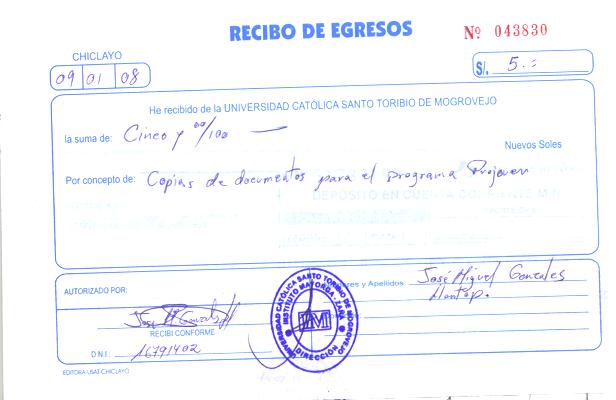 RECIBO DE EGRESOS
Nº 043830
CHICLAYO
09 01 08
S/. 5.=
He recibido de la UNIVERSIDAD CATÓLICA SANTO TORIBIO DE MOGROVEJO
la suma de: Cinco y 00/100 —
Nuevos Soles
Por concepto de: Copias de documentos para el programa Projoven
DEPÓSITO EN CUENTA CORRIENTE M.N.
AUTORIZADO POR:
res y Apellidos: José Miguel Gonzales
UNIVERSIDAD CATÓLICA SANTO TORIBIO DE MOGROVEJO
DIRECCIÓN
RECIBI CONFORME
D N I : 16791402
EDITORA USAT-CHICLAYO